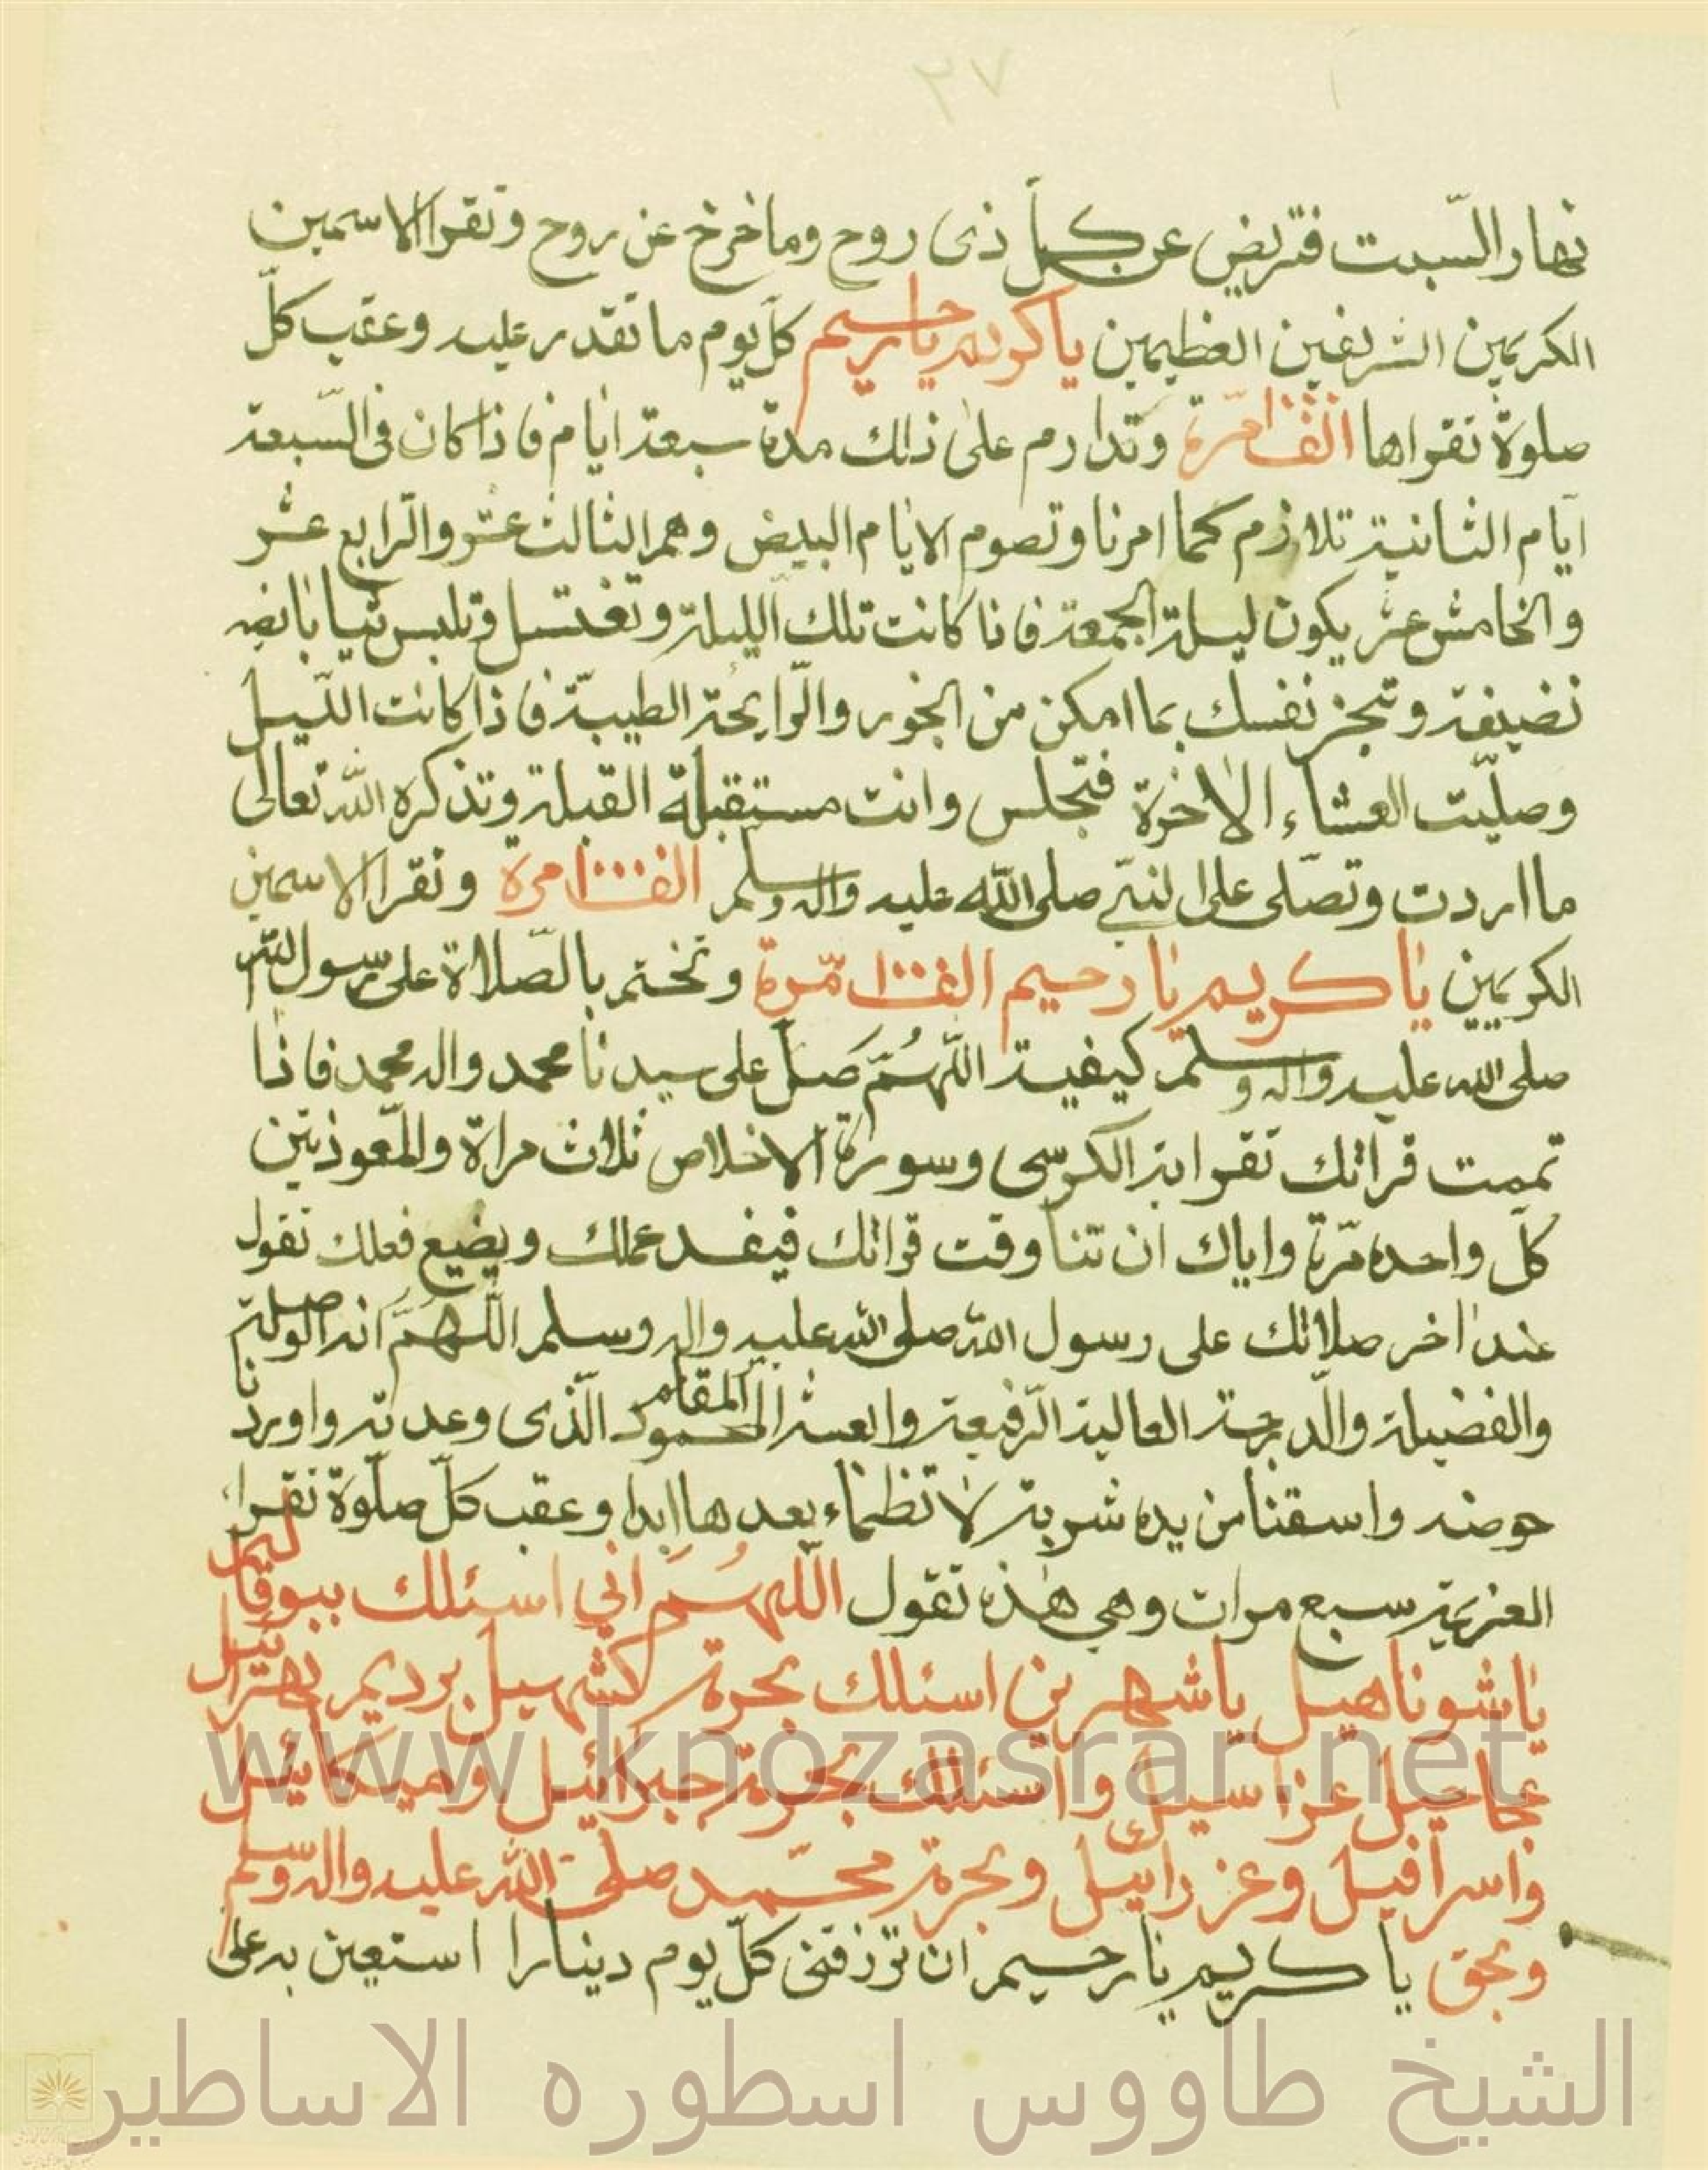 ٢٧
نهار السّبت فتريض عن كلّ ذى روح وما خرج عن روح وتقرا الاسمين
الكريمين الشريفين العظيمين يا كريم يا رحيم كلّ يوم ما تقدر عليه وعقب كلّ
صلوة تقراها الف ١٠٠٠ مرّة وتداوم على ذلك مدة سبعة ايام فاذا كان فى السّبعة
ايام الثانية تلازم كما امرنا وتصوم الايام البيض وهم الثالث عشر والرّابع عشر
والخامس عشر يكون ليلة الجمعة فاذا كانت تلك الليلة وتغتسل وتلبس ثيابا
نضيفة وتبخر نفسك بما امكن من البخور والرّايحة الطيبة فاذا كانت اللّيل
وصليّت العشاء الاخرة فتجلس وانت مستقبلة القبلة وتذكره الله تعالى
ما اردت وتصلى على النبيّ صلى الله عليه واله وسلم الف ١٠٠٠ مرة وتقرا الاسمين
الكريمين يا كريم يا رحيم الف ١٠٠٠ مرّة وتختم بالصّلاة على رسول الله
صلى الله عليه واله وسلم كيفية اللّهُمّ صَلّ على سيدنا محمد واله محمد فاذا
تميت قراتك تقرا اية الكرسى وسورة الاخلاص ثلاث مراة والمعوذتين
كلّ واحده مرّة واياك ان تنا وقت قراتك فيفسد عملك ويضيع فعلك تقول
عند اخر صلاتك على رسول الله صلى الله عليه واله وسلم اللّهُمَّ اته الوسيلة
والفضيلة والدّرجة العالية الرّفيعة وابعثه المقام المحمود الّذى وعدته واوردنا
حوضه واسقنا من يده شربة لا تظماء بعدها ابدا وعقب كلّ صلّوة تقرا
العزيمة سبع مرات وهي هذه تقول اللّهُمَّ اني اسئلك
يا شوناهيل يا شهرين اسئلك بحرمة كشهيل برديم
عزاسيل واسئلك بحرمة جبرائيل وميكائيل
واسرافيل وعزرائيل وبحرمة محمّد صلى الله عليه واله وسلم
وبحق يا كريم يا رحيم ان ترزقنى كلّ يوم دينارا استعين به على
www.knozasrar.net
الشيخ طاووس اسطوره الاساطير